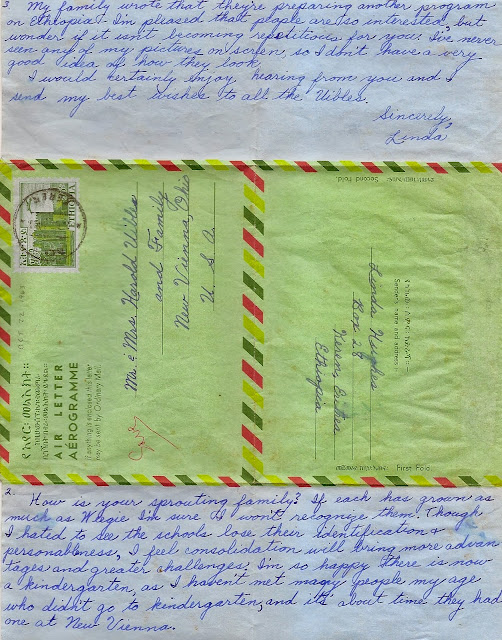 3. My family wrote that they're preparing another program
on Ethiopia! I'm pleased that people are so interested, but
wonder if it isn't becoming repetitious for you. I've never
seen any of my pictures on screen, so I don't have a very
good idea of how they look.
I would certainly enjoy hearing from you and I
send my best wishes to all the Uibles.
Sincerely,
Linda
ETHIOPIA
Mr. & Mrs. Harold Uible
and Family
New Vienna, Ohio
U. S. A.
AIR LETTER
AÉROGRAMME
If anything is enclosed this letter
may be sent by Ordinary Mail.
Second Fold.
Sender's name and address
Linda Hughes
Box 28
Keren, Eritrea
Ethiopia
First Fold.
2. How is your sprouting family? If each has grown as
much as I'm sure I won't recognize them. Though
I hated to see the schools lose their identification &
personableness, I feel consolidation will bring more advan
tages and greater challenges. I'm so happy there is now
a kindergarten, as I haven't met many people my age
who didn't go to kindergarten, and it's about time they had
one at New Vienna.